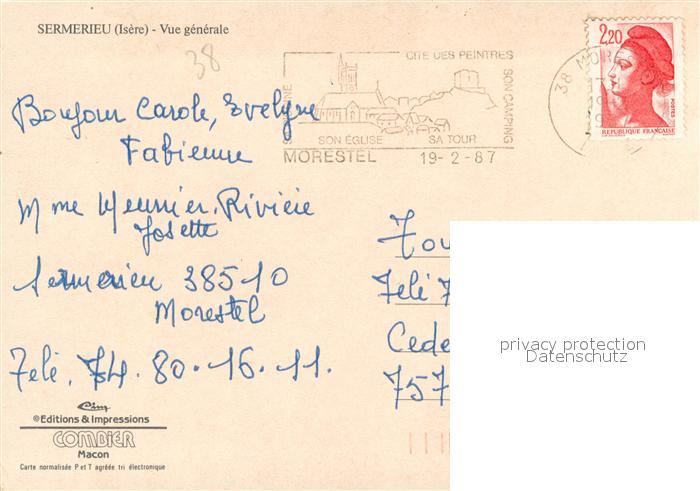 SERMERIEU (Isère) - Vue générale
38
CITE DES PEINTRES
SON CAMPING
SON ÉGLISE SA TOUR
MORESTEL 19-2-87
38 MORE
2,20
POSTES
REPUBLIQUE FRANÇAISE
Bonjour Carole, Evelyne
Fabienne
Mme Meunier. Rivière
Josette
Sermerieu 38510
Morestel
Télé. 74. 80. 16. 11.
Télé 7
Cede
757
privacy protection
Datenschutz
Cim
©Editions & Impressions
COMBIER
Macon
Carte normalisée P et T agréée tri électronique